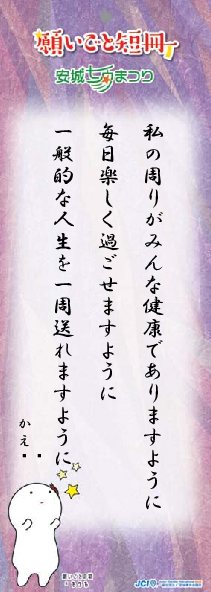 願いごと短冊
安城七夕まつり
私の周りがみんな健康でありますように
毎日楽しく過ごせますように
一般的な人生を一周送れますように
かぇ
JCI